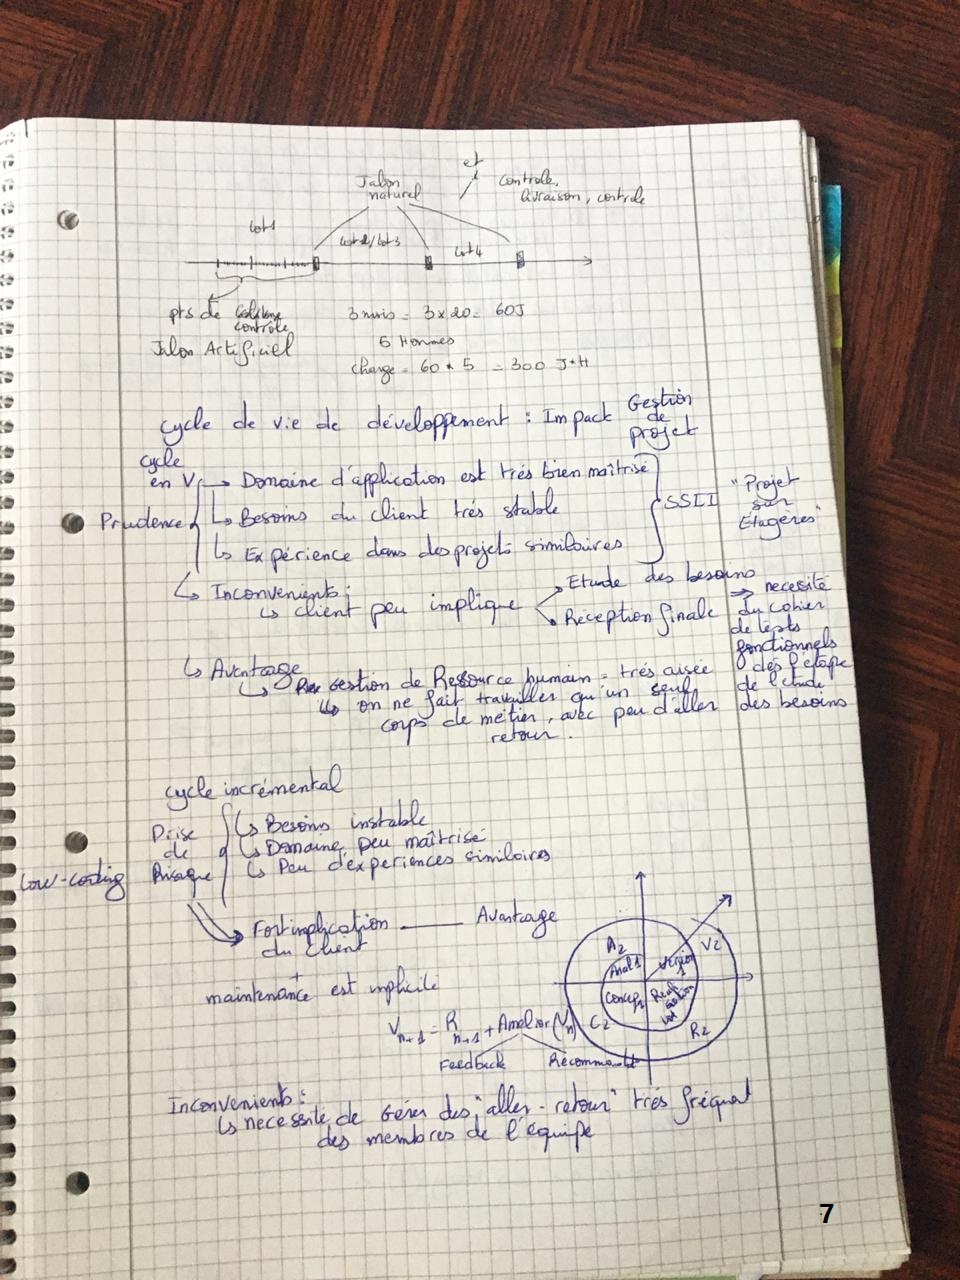 et
Jalon
naturel
controle,
livraison, controle
Lot1
Lot2/Lot3
Lot4
pts de
controle
Jalon Artificiel
3 mois = 3 x 20 = 60J
5 Hommes
charge = 60 * 5 = 300 J*H
cycle de vie de développement : Impact Gestion
de
projet
cycle
en V
Prudence
→ Domaine d'application est trés bien maîtrisé
↳ Besoins du client trés stable
↳ Expérience dans des projets similaires
SSII
"Projet
sur
Etagères"
↳ Inconvenients :
↳ client peu impliqué
Etude des besoins
Réception finale
⇒ necesité
du cahier
de
fonctionnels
dés l'étape
de l'etude
des besoins
↳ Avantage
↳ Gestion de Ressource humain = trés aisée
↳ on ne fait travailler qu'un seul
corps de métier, avec peu d'aller
retour.
cycle incrémental
Prise
de
Risque
↳ Besoins instable
↳ Domaine peu maîtrisé
↳ Peu d'experiences similaires
Low-costing
Fort implication
du client
Avantage
+
maintenance est implicite
Vn+1 = Rn+1 + Amélior (Vn)
Feedback
A2
V2
Anal 1
Version
1
Concep
Reali
sation
C2
R2
Inconvenients :
↳ necessité de Gérer des "aller-retour" trés fréquent
des membres de l'équipe
7